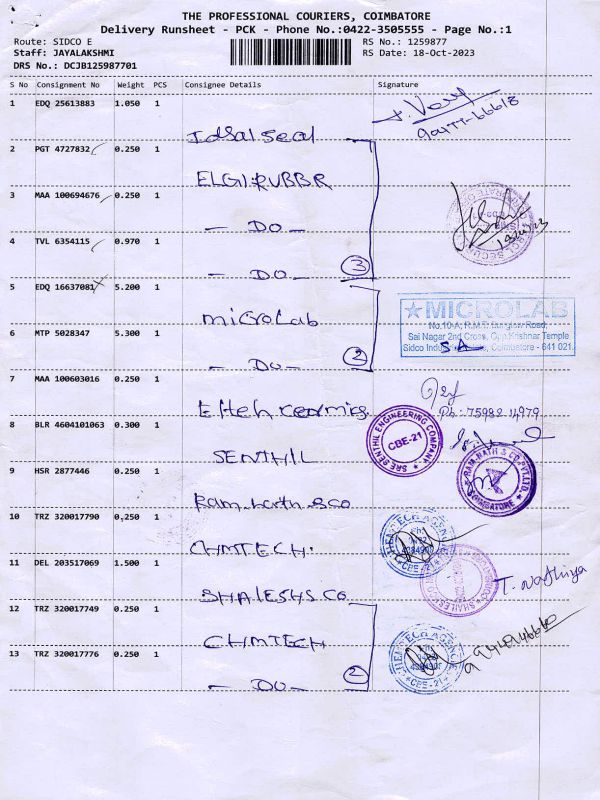 THE PROFESSIONAL COURIERS, COIMBATORE
Delivery Runsheet - PCK - Phone No.:0422-3505555 - Page No.:1
Route: SIDCO E
RS No.: 1259877
Staff: JAYALAKSHMI
RS Date: 18-Oct-2023
DRS No.: DCJB125987701
S No Consignment No Weight PCS Consignee Details Signature
1 EDQ 25613883 1.050 1
Idsal Seal
2 PGT 4727832 0.250 1
ELGI:RUBBR
3 MAA 100694676 0.250 1
- DO -
4 TVL 6354115 0.970 1
- DO - 3
5 EDQ 16637081 5.200 1
microLab
MICROLAB
Sai Nagar 2nd Cross, Opp.Krishnar Temple
Coimbatore - 641 021.
6 MTP 5028347 5.300 1
- DO - 2
7 MAA 100603016 0.250 1
Ph: 75982 11979
8 BLR 4604101063 0.300 1
SENTHIL
SRE SENTHIL ENGINEERING COMPANY
CBE-21
9 HSR 2877446 0.250 1
Ram.nath.&co
RAM-NATH & CO PVT.LTD.
COIMBATORE
10 TRZ 320017790 0.250 1
CHMTECH.
CBE-21
11 DEL 203517069 1.500 1
SHALESHS CO
T. Nathiya
12 TRZ 320017749 0.250 1
CHMTECH
13 TRZ 320017776 0.250 1
- DO - 2
CBE-21